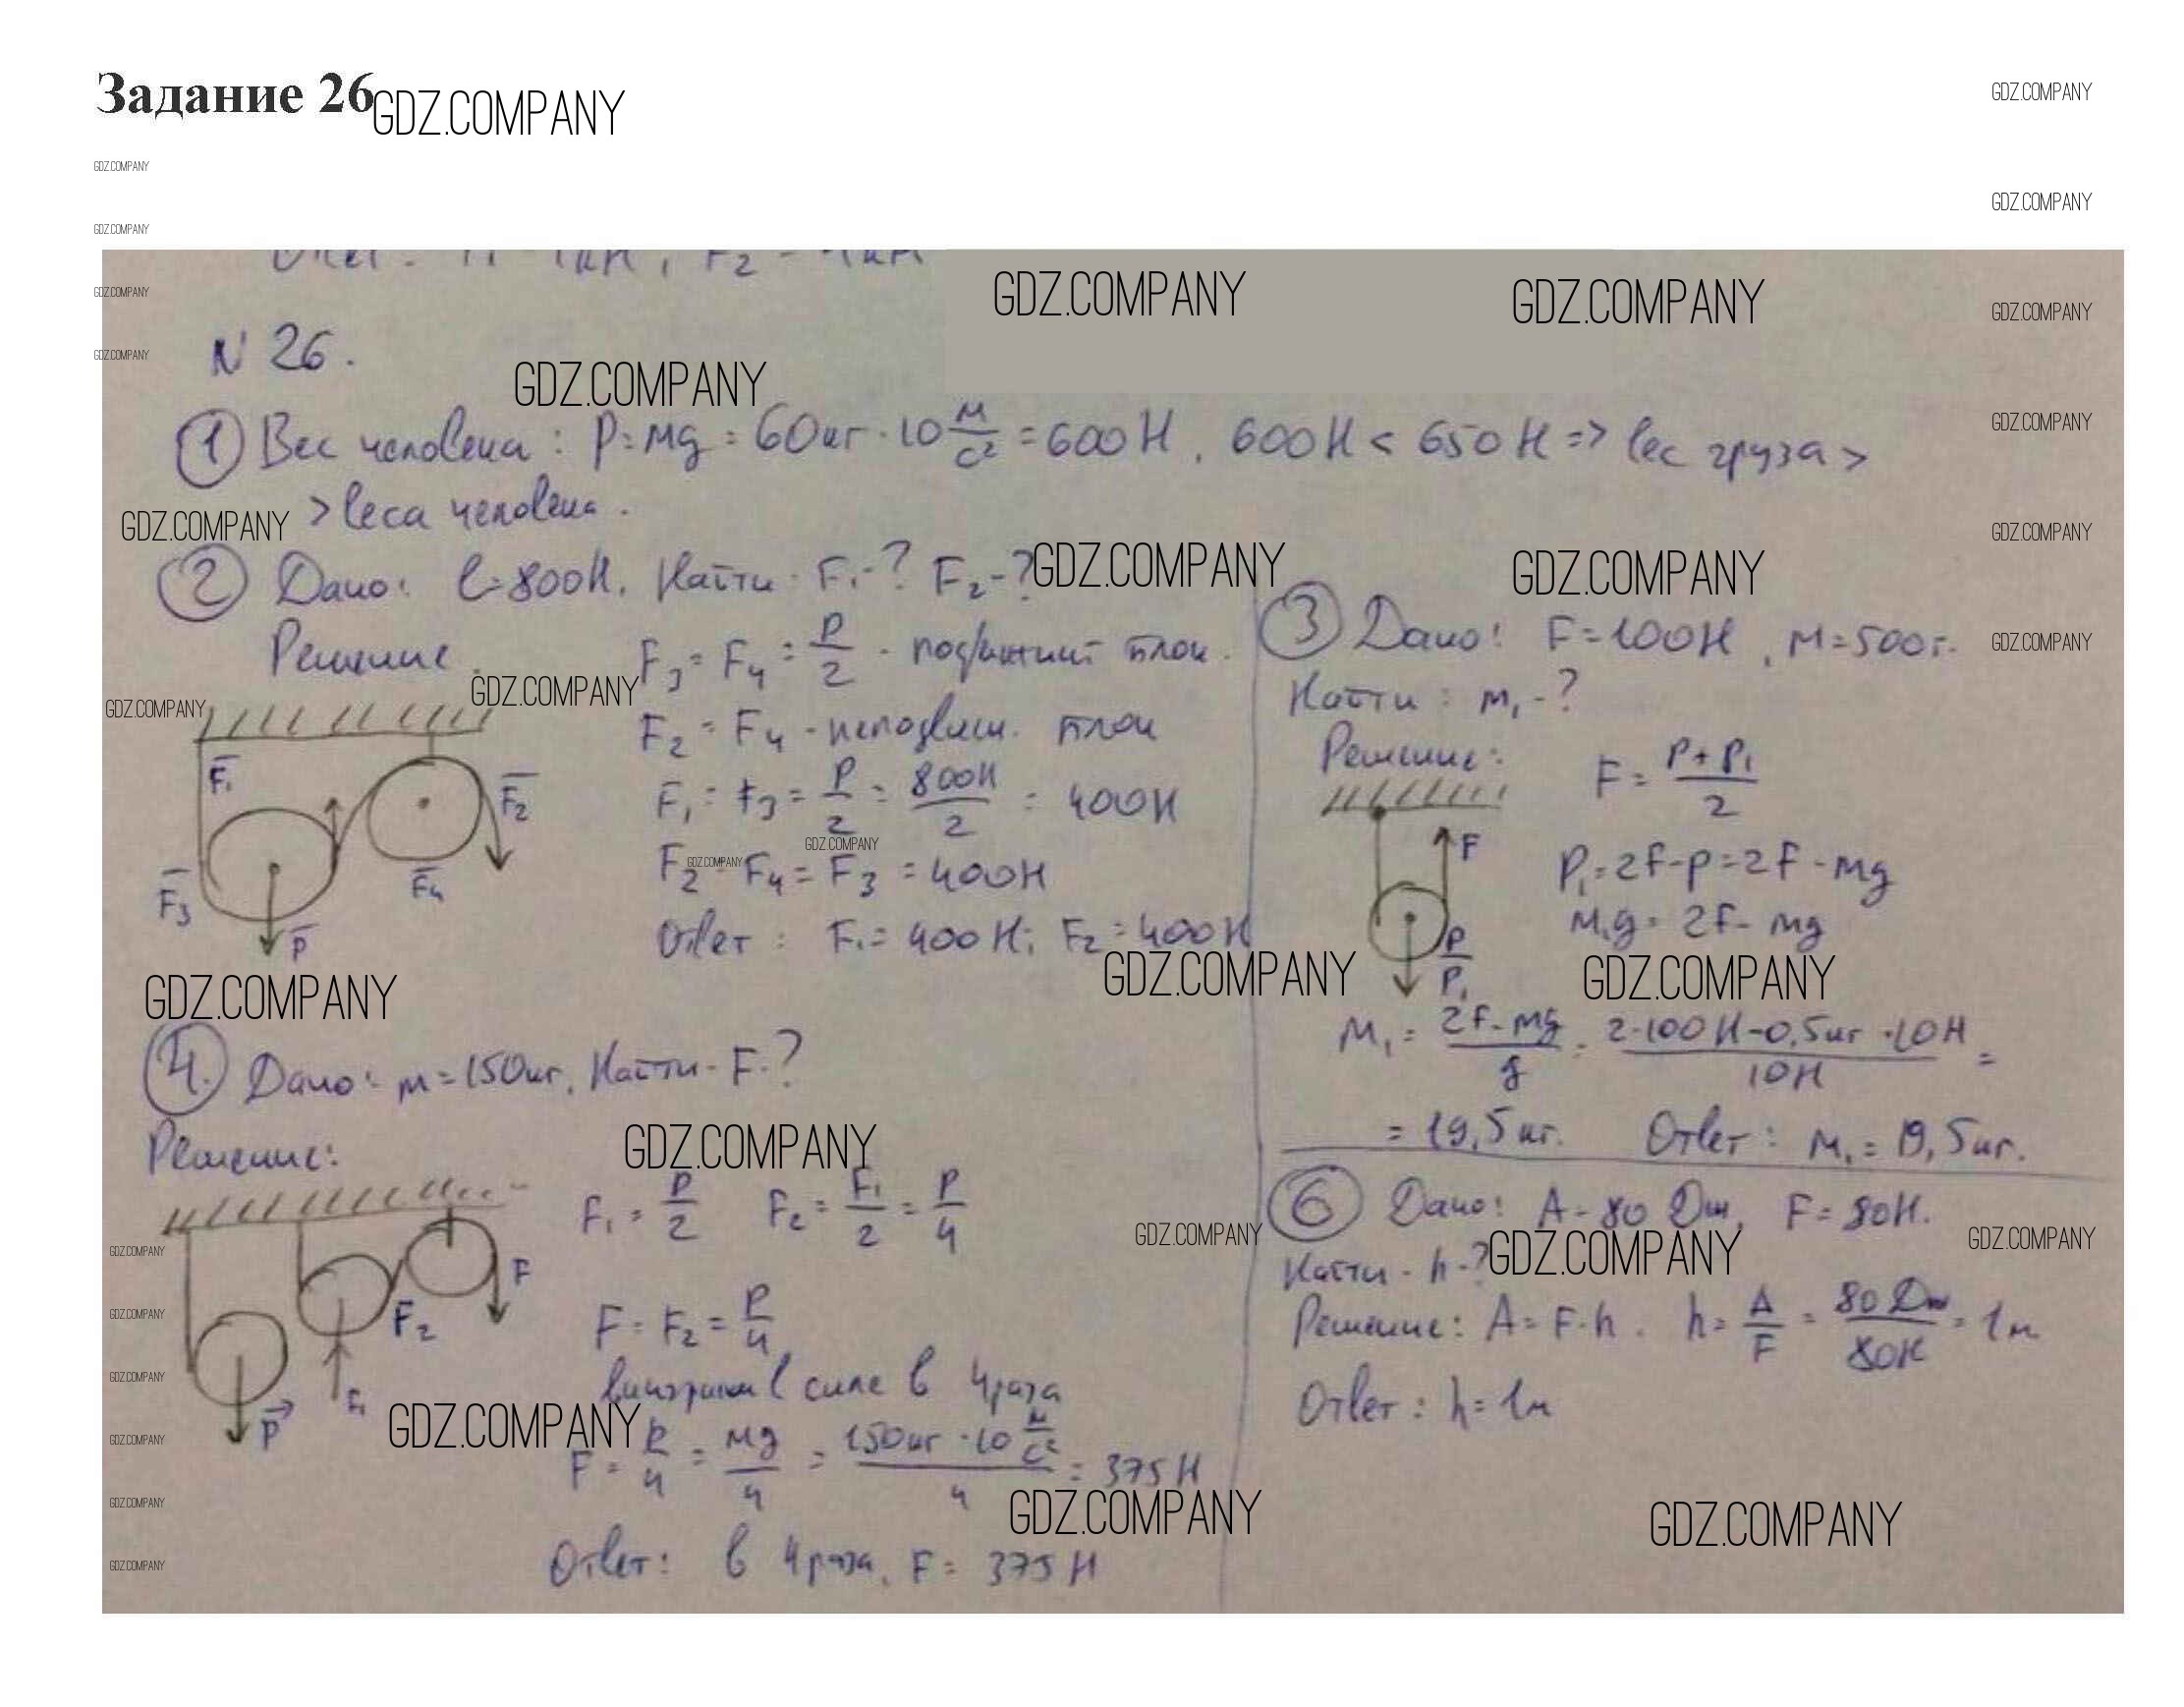 Задание 26
GDZ.COMPANY
N 26.
① Вес человека: P=mg=60кг·10 м/с² =600Н, 600Н < 650Н => вес груза >
> веса человека.
② Дано: l=800Н. Найти: F₁-? F₂-?
Решение.
F₃ = F₄ = P/2 - подвижный блок.
F₂ = F₄ - неподвижн. блок
F₁ = F₃ = P/2 = 800Н/2 = 400Н
F₂ = F₄ = F₃ = 400Н
Ответ: F₁= 400Н; F₂=400Н
F₁
F₂
F₃
F₄
P
③ Дано: F=100Н, м=500г.
Найти: м₁-?
Решение:
F = P+P₁/2
P₁=2F-P=2F-mg
м₁g= 2F-mg
F
P
P₁
м₁ = 2F-mg/g = 2·100Н-0,5кг·10Н/10Н =
= 19,5кг. Ответ: м₁= 19,5кг.
④ Дано: м=150кг. Найти - F-?
Решение:
F₁ = P/2 F₂ = F₁/2 = P/4
F= F₂ = P/4
в силе в 4 раза
F = P/4 = mg/4 = 150кг·10 м/с²/4 = 375Н
Ответ: в 4 раза, F= 375Н
F
F₂
F₁
P
⑥ Дано: A=80 Дж, F= 80Н.
Найти - h-?
Решение: A= F·h. h= A/F = 80Дж/80Н = 1м
Ответ: h=1м